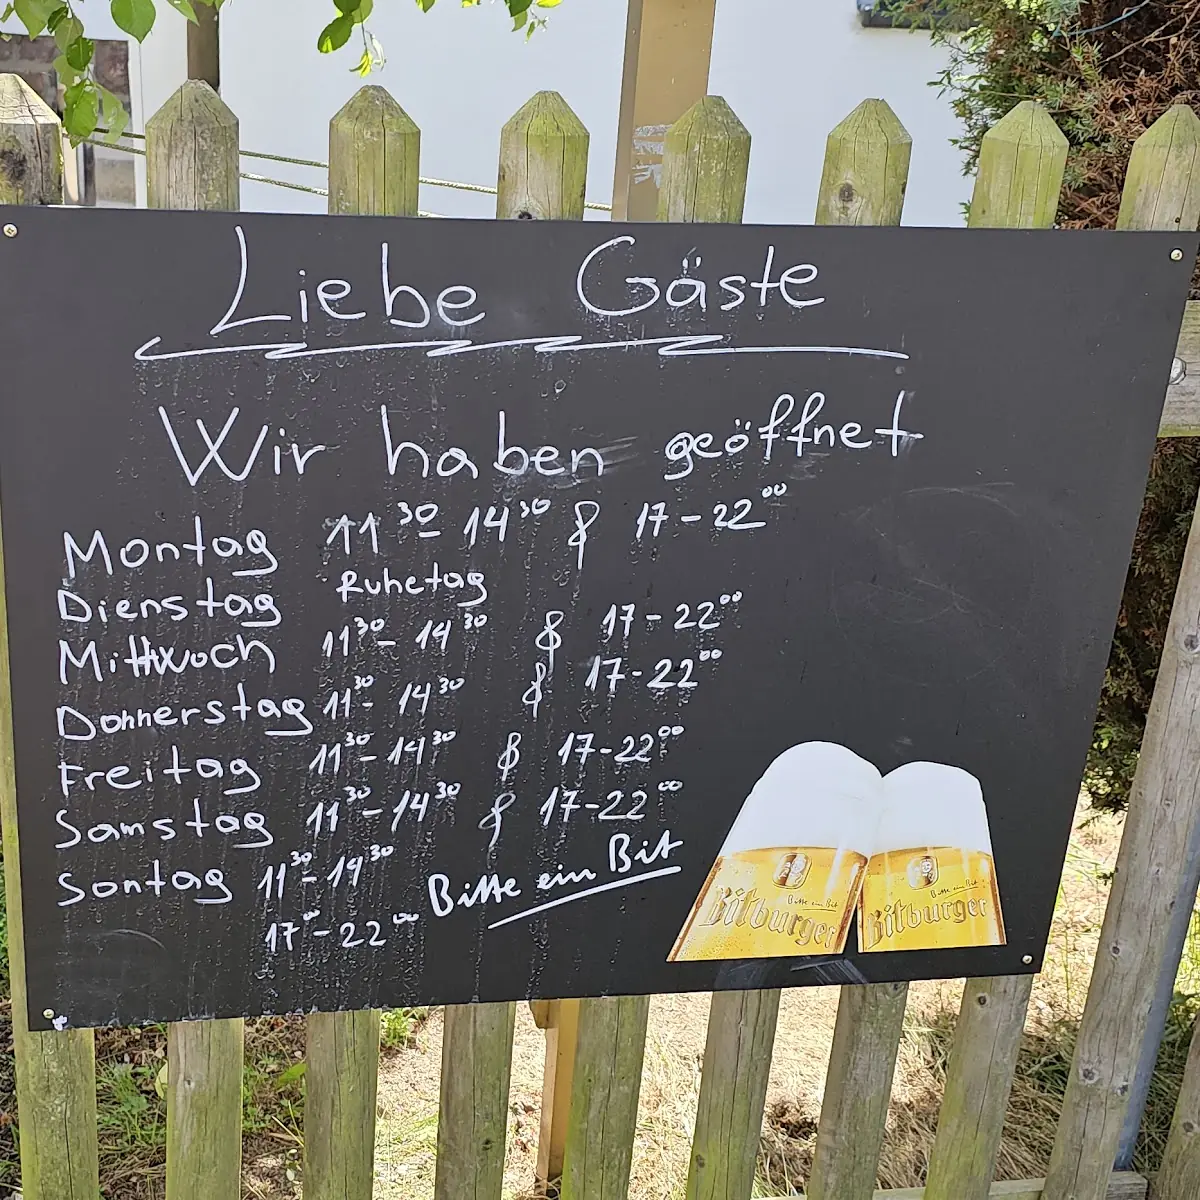 Liebe Gäste
Wir haben geöffnet
Montag 11³⁰ - 14³⁰ & 17 - 22⁰⁰
Dienstag Ruhetag
Mittwoch 11³⁰ - 14³⁰ & 17 - 22⁰⁰
Donnerstag 11³⁰ - 14³⁰ & 17 - 22⁰⁰
Freitag 11³⁰ - 14³⁰ & 17 - 22⁰⁰
Samstag 11³⁰ - 14³⁰ & 17 - 22⁰⁰
Sontag 11³⁰ - 14³⁰
17⁰⁰ - 22⁰⁰
Bitte ein Bit
Bitte ein Bit
Bitburger
Bitte ein Bit
Bitburger